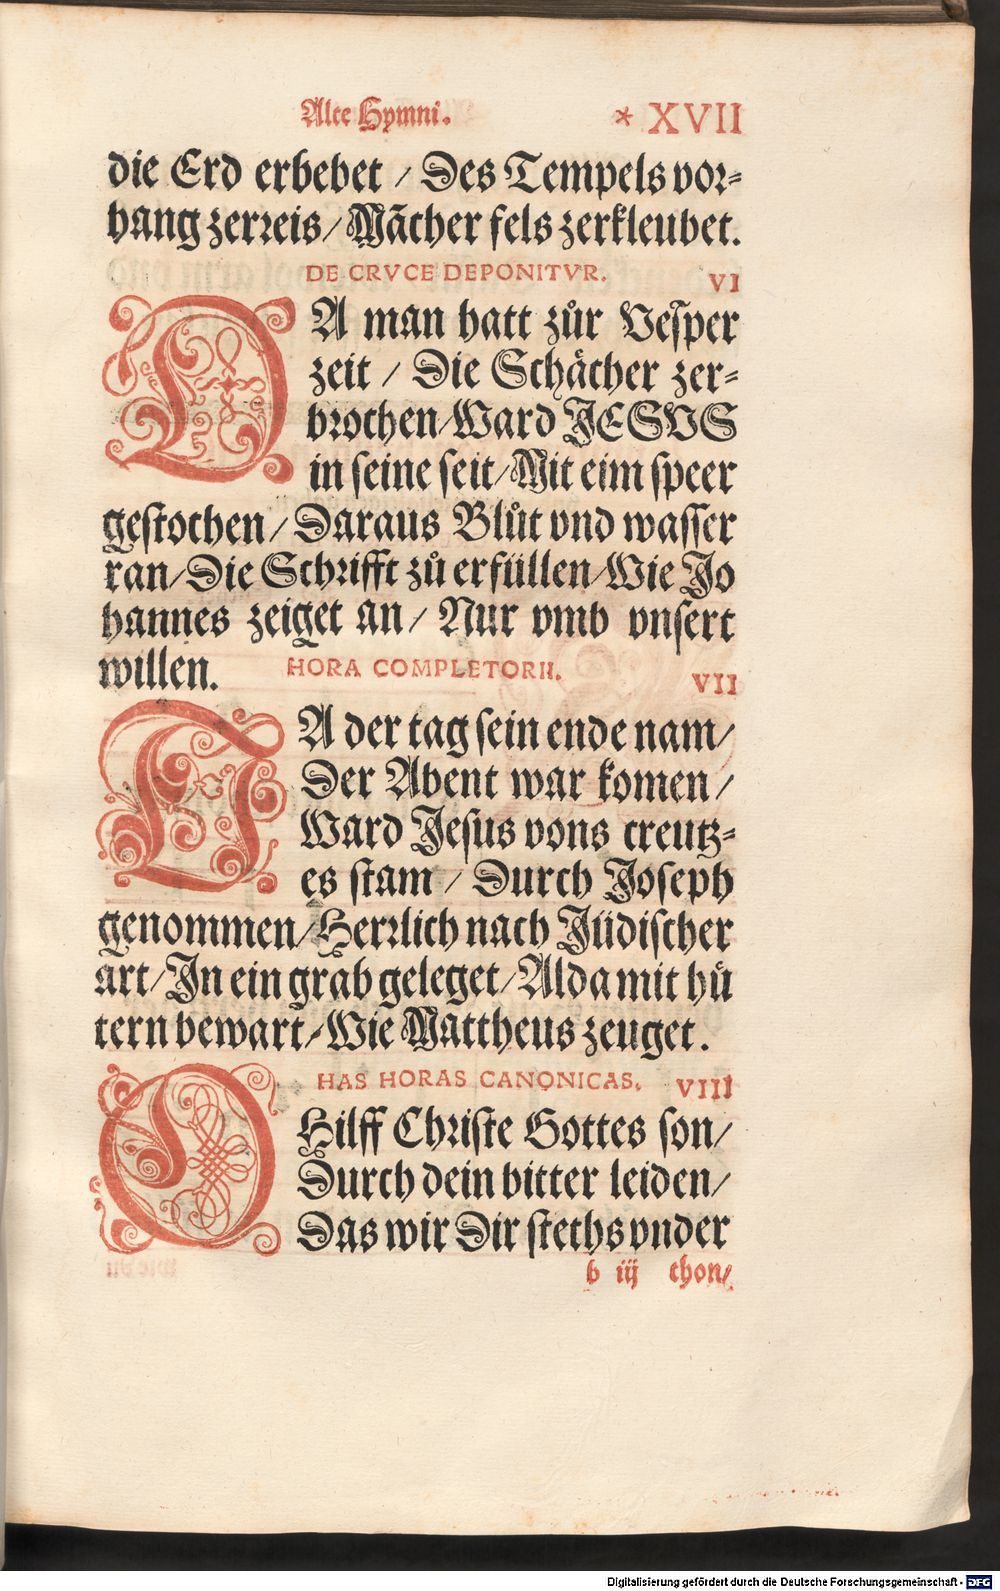 Alte Hymni. * XVII
die Erd erbebet / Des Tempels vor-
hang zerreis / Mācher fels zerkleubet.
DE CRVCE DEPONITVR. VI
DA man hatt zůr Vesper
zeit / Die Schächer zer-
brochen / Ward JESVS
in seine seit / Mit eim speer
gestochen / Daraus Blůt vnd wasser
ran / Die Schrifft zů erfüllen / Wie Jo
hannes zeiget an / Nur vmb vnsert
willen.
HORA COMPLETORII. VII
DA der tag sein ende nam /
Der Abent war komen /
Ward Jesus vons creutz-
es stam / Durch Joseph
genommen / Herrlich nach Jüdischer
art / In ein grab geleget / Alda mit hů
tern bewart / Wie Mattheus zeuget.
HAS HORAS CANONICAS. VIII
O Hilff Christe Gottes son /
Durch dein bitter leiden /
Das wir Dir steths vnder
b iij thon /
Digitalisierung gefördert durch die Deutsche Forschungsgemeinschaft - DFG